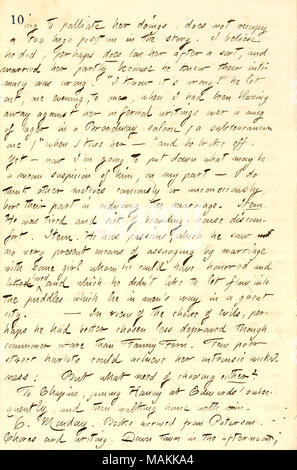 10
ing to palliate her doings, does not occupy
a too high position in the story. I believe
he did, perhaps does love her after a sort, and
married her partly because he knew their inti-
macy was wrong. "I knew it's wrong!" he let
out, one evening, to me, when I had been blazing
away against her infernal writings over a mug
of lager in a Broadway saloon, (a subterranean
one,) when I used her — "and he broke off.
Yet — now I'm going to put down what may be
a mean suspicion of him, on my part — I do
think other motives consciously or unconsciously
bore their part in inducing the marriage. Item.
He was tired and sick of boarding-house discom-
fort. Item. He has passions, which he saw
no very present means of assuaging by marriage
with some girl whom he could have honored and
loved, and which he didn't like to let flow into
the puddles which lie in men's way in a great
city. — In view of the choice of evils, per-
haps he had better chosen less depraved though
commoner ware than Fanny Fern. Few poor
street harlots could achieve her intrinsic nasti-
ness! But what need of choosing either?
To Chapins, joining Haney at Edwards' subse-
quently, and then walking home with him.
6. Monday. Books arrived from Peterson.
Chores and writing. Down town in the afternoon,
alamy
Image ID: MAKKA4
www.alamy.com